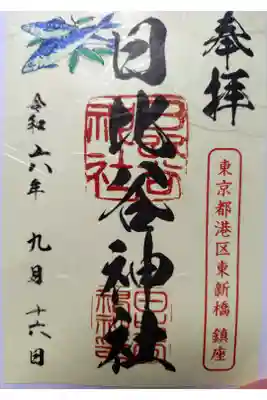 奉拝
東京都港区東新橋 鎮座
日比谷神社
令和六年 九月 十六日